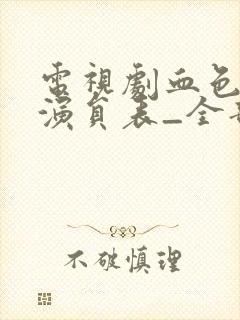 電視劇血色
演員表_全
不破慎理